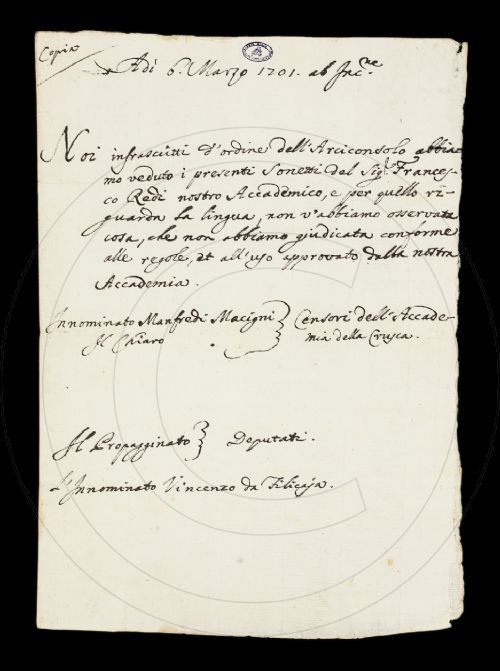 Copia
Adì 6. Marzo 1701. ab Inc.ne
Noi infrascritti d'ordine dell'Arciconsolo abbia-
mo veduto i presenti Sonetti del Sig.r Frances-
co Redi nostro Accademico, e per quello ri-
guarda la lingua, non v'abbiamo osservata
cosa, che non abbiamo giudicata conforme
alle regole, et all'uso approvato dalla nostra
Accademia.
Innominato Manfredi Macigni } Censori dell'Accade-
Il Chiaro mia della Crusca.
Il Propagginato } Deputati.
L'Innominato Vincenzo da Filicaja.